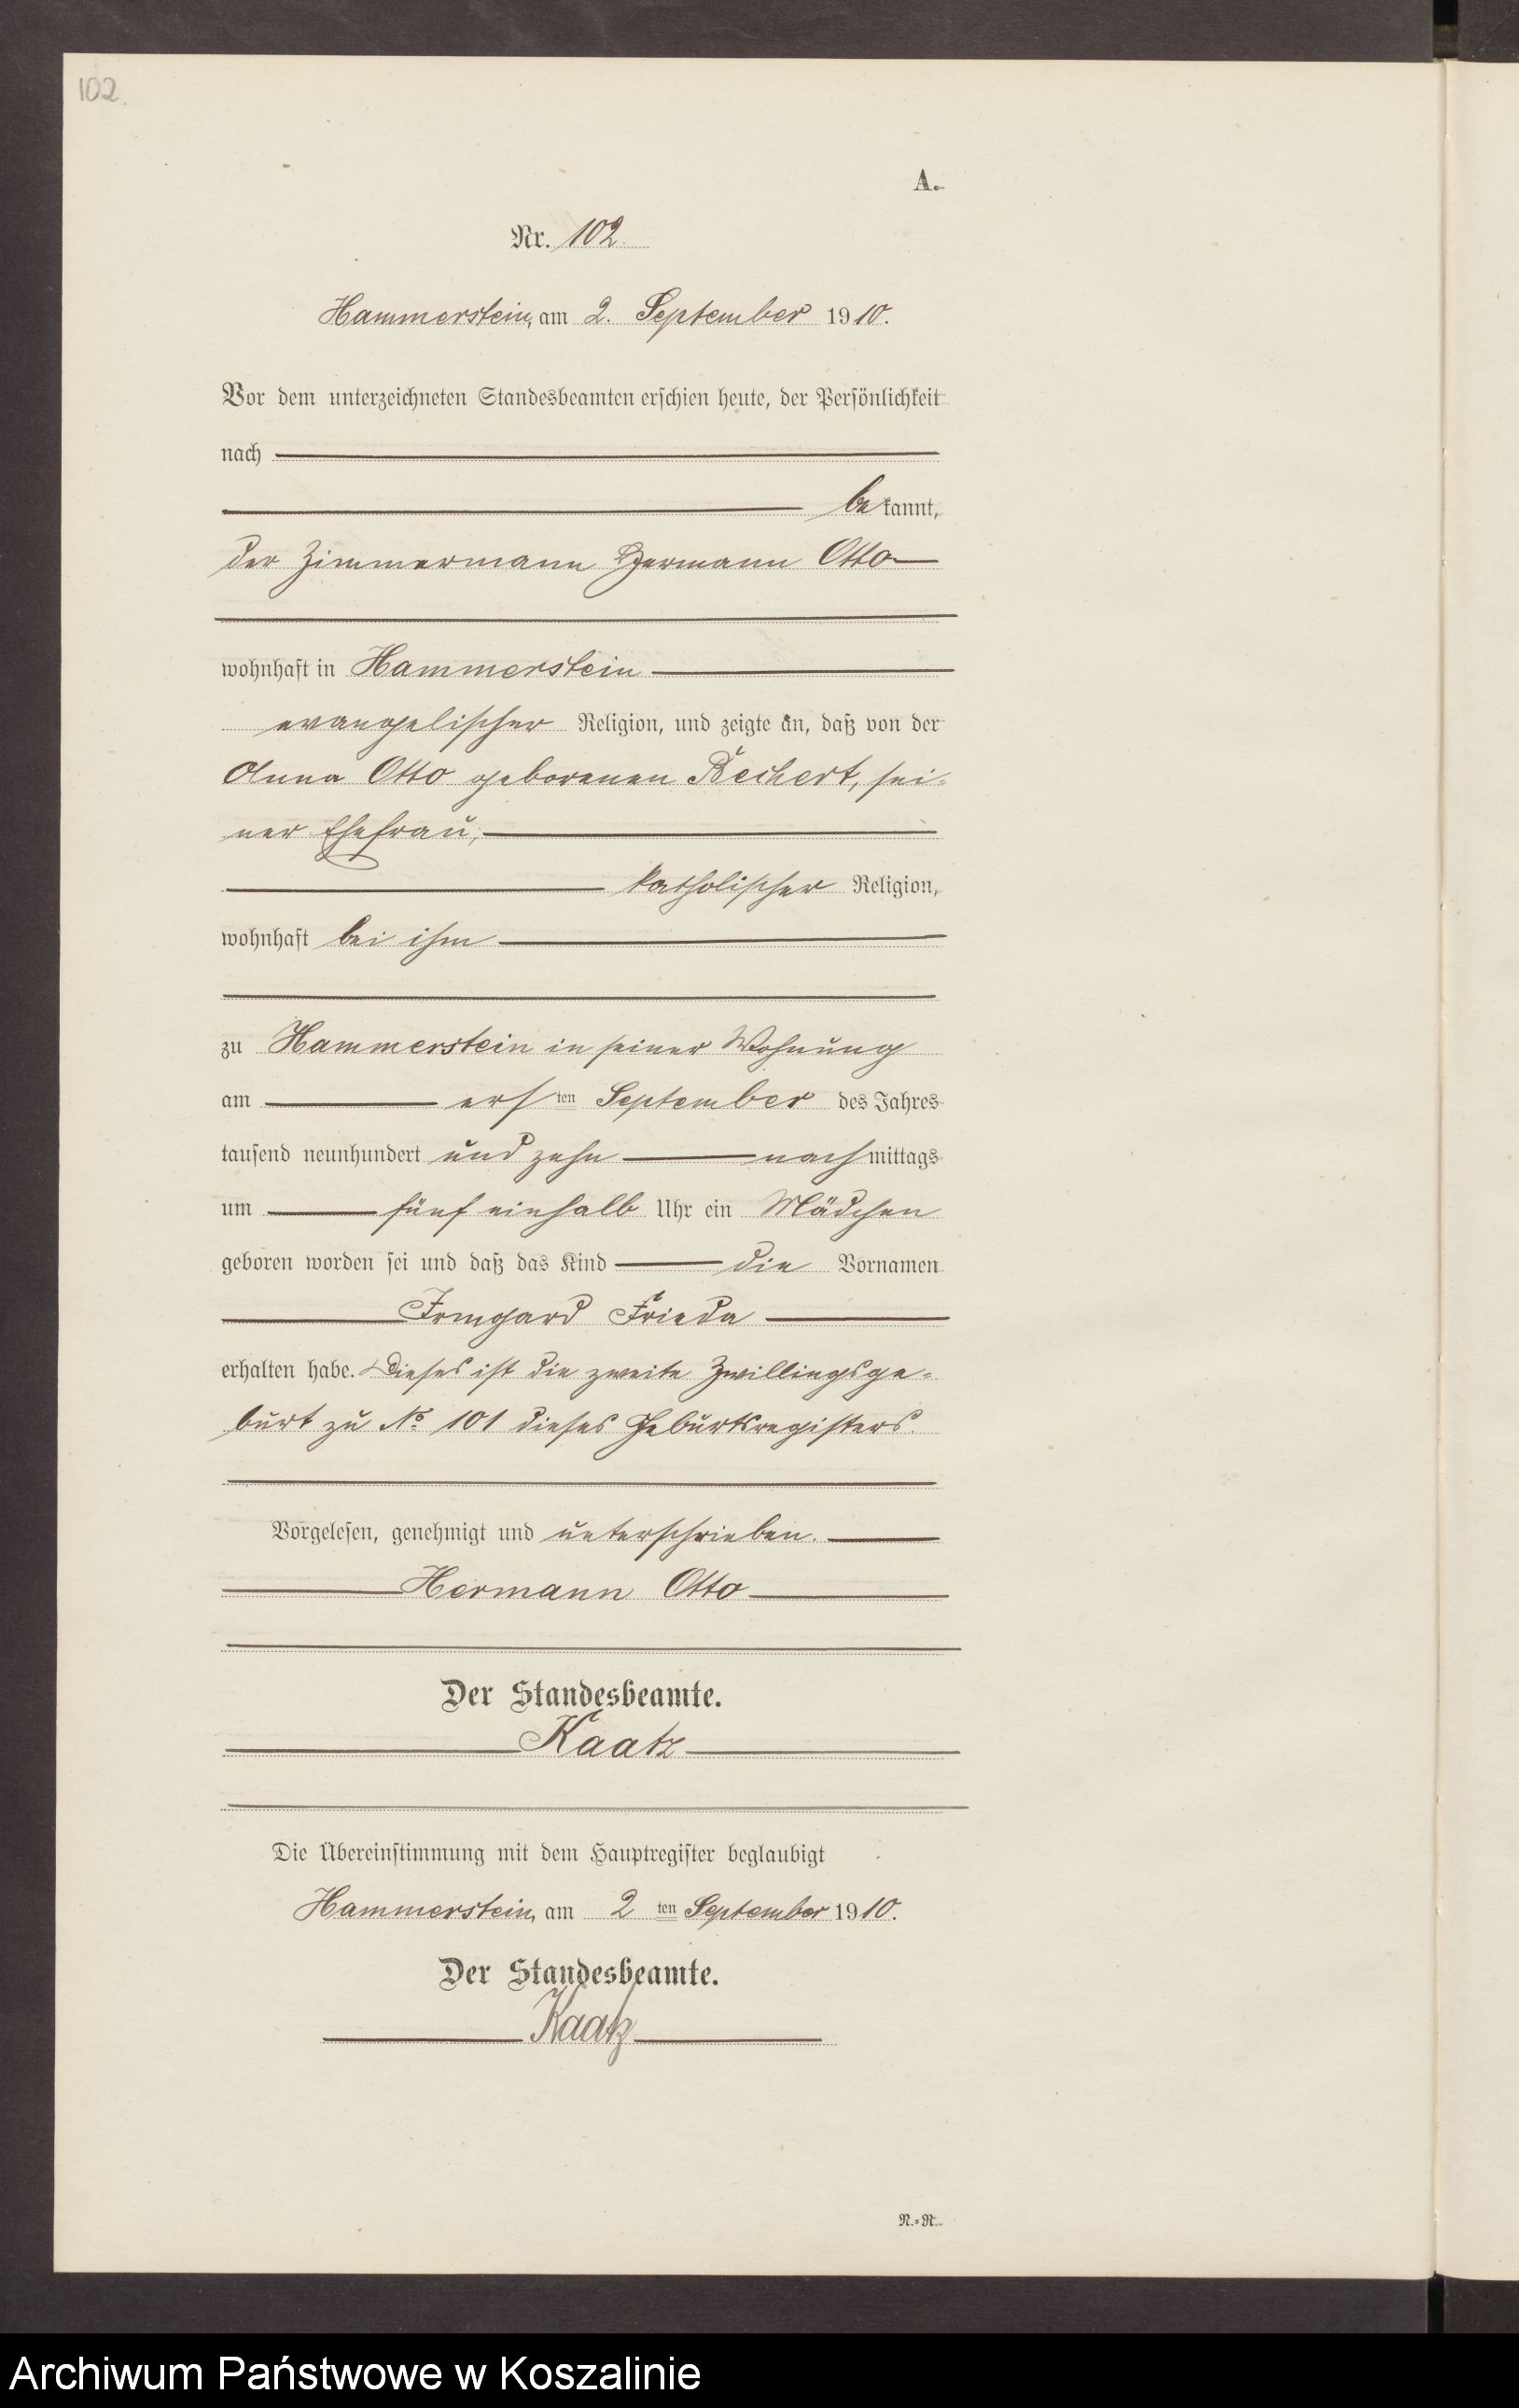 102.
A.
Nr. 102
Hammerstein, am 2. September 1910.
Vor dem unterzeichneten Standesbeamten erschien heute, der Persönlichkeit
nach
bekannt,
der Zimmermann Hermann Otto
wohnhaft in Hammerstein
evangelischer Religion, und zeigte an, daß von der
Anna Otto geborenen Bechert, sei-
ner Ehefrau,
katholischer Religion,
wohnhaft bei ihm
zu Hammerstein in seiner Wohnung
am ersten September des Jahres
tausend neunhundert und zehn nachmittags
um fünf einhalb Uhr ein Mädchen
geboren worden sei und daß das Kind die Vornamen
Irmgard Frieda
erhalten habe. Dieses ist die zweite Zwillingsge-
burt zu No 101 dieses Geburtsregisters.
Vorgelesen, genehmigt und unterschrieben.
Hermann Otto
Der Standesbeamte.
Kaatz
Die Übereinstimmung mit dem Hauptregister beglaubigt
Hammerstein, am 2ten September 1910.
Der Standesbeamte.
Kaatz
N.-R.
Archiwum Państwowe w Koszalinie